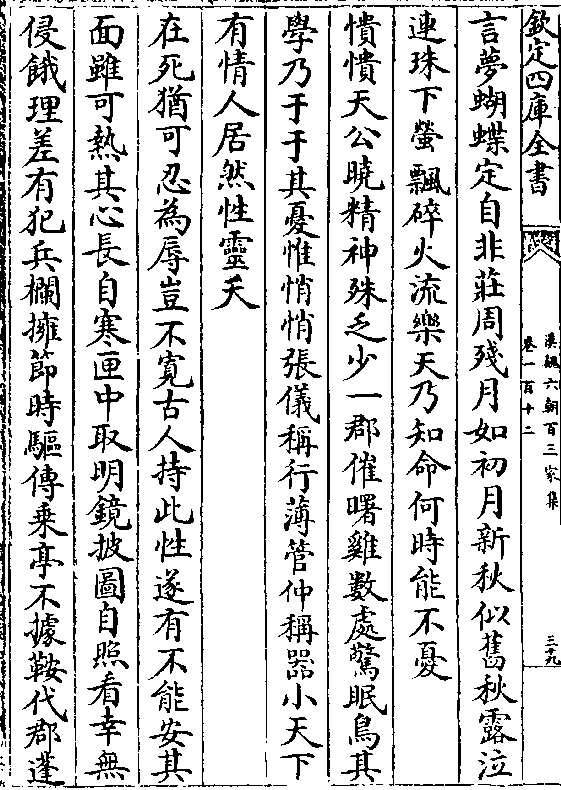 欽定四庫全書
漢魏六朝百三家集
卷一百十二
三十九
言夢蝴蝶定自非莊周殘月如初月新秋似舊秋露泣
連珠下螢飄碎火流樂天乃知命何時能不憂
憒憒天公曉精神殊乏少一郡催曙雞數處驚眠鳥其
學乃于于其憂惟悄悄張儀稱行薄管仲稱器小天下
有情人居然性靈夭
在死猶可忍為辱豈不寛古人持此性遂有不能安其
面雖可熱其心長自寒匣中取明鏡披圖自照看幸無
侵餓理差有犯兵欄擁節時驅傳乗亭不據鞍代郡蓬